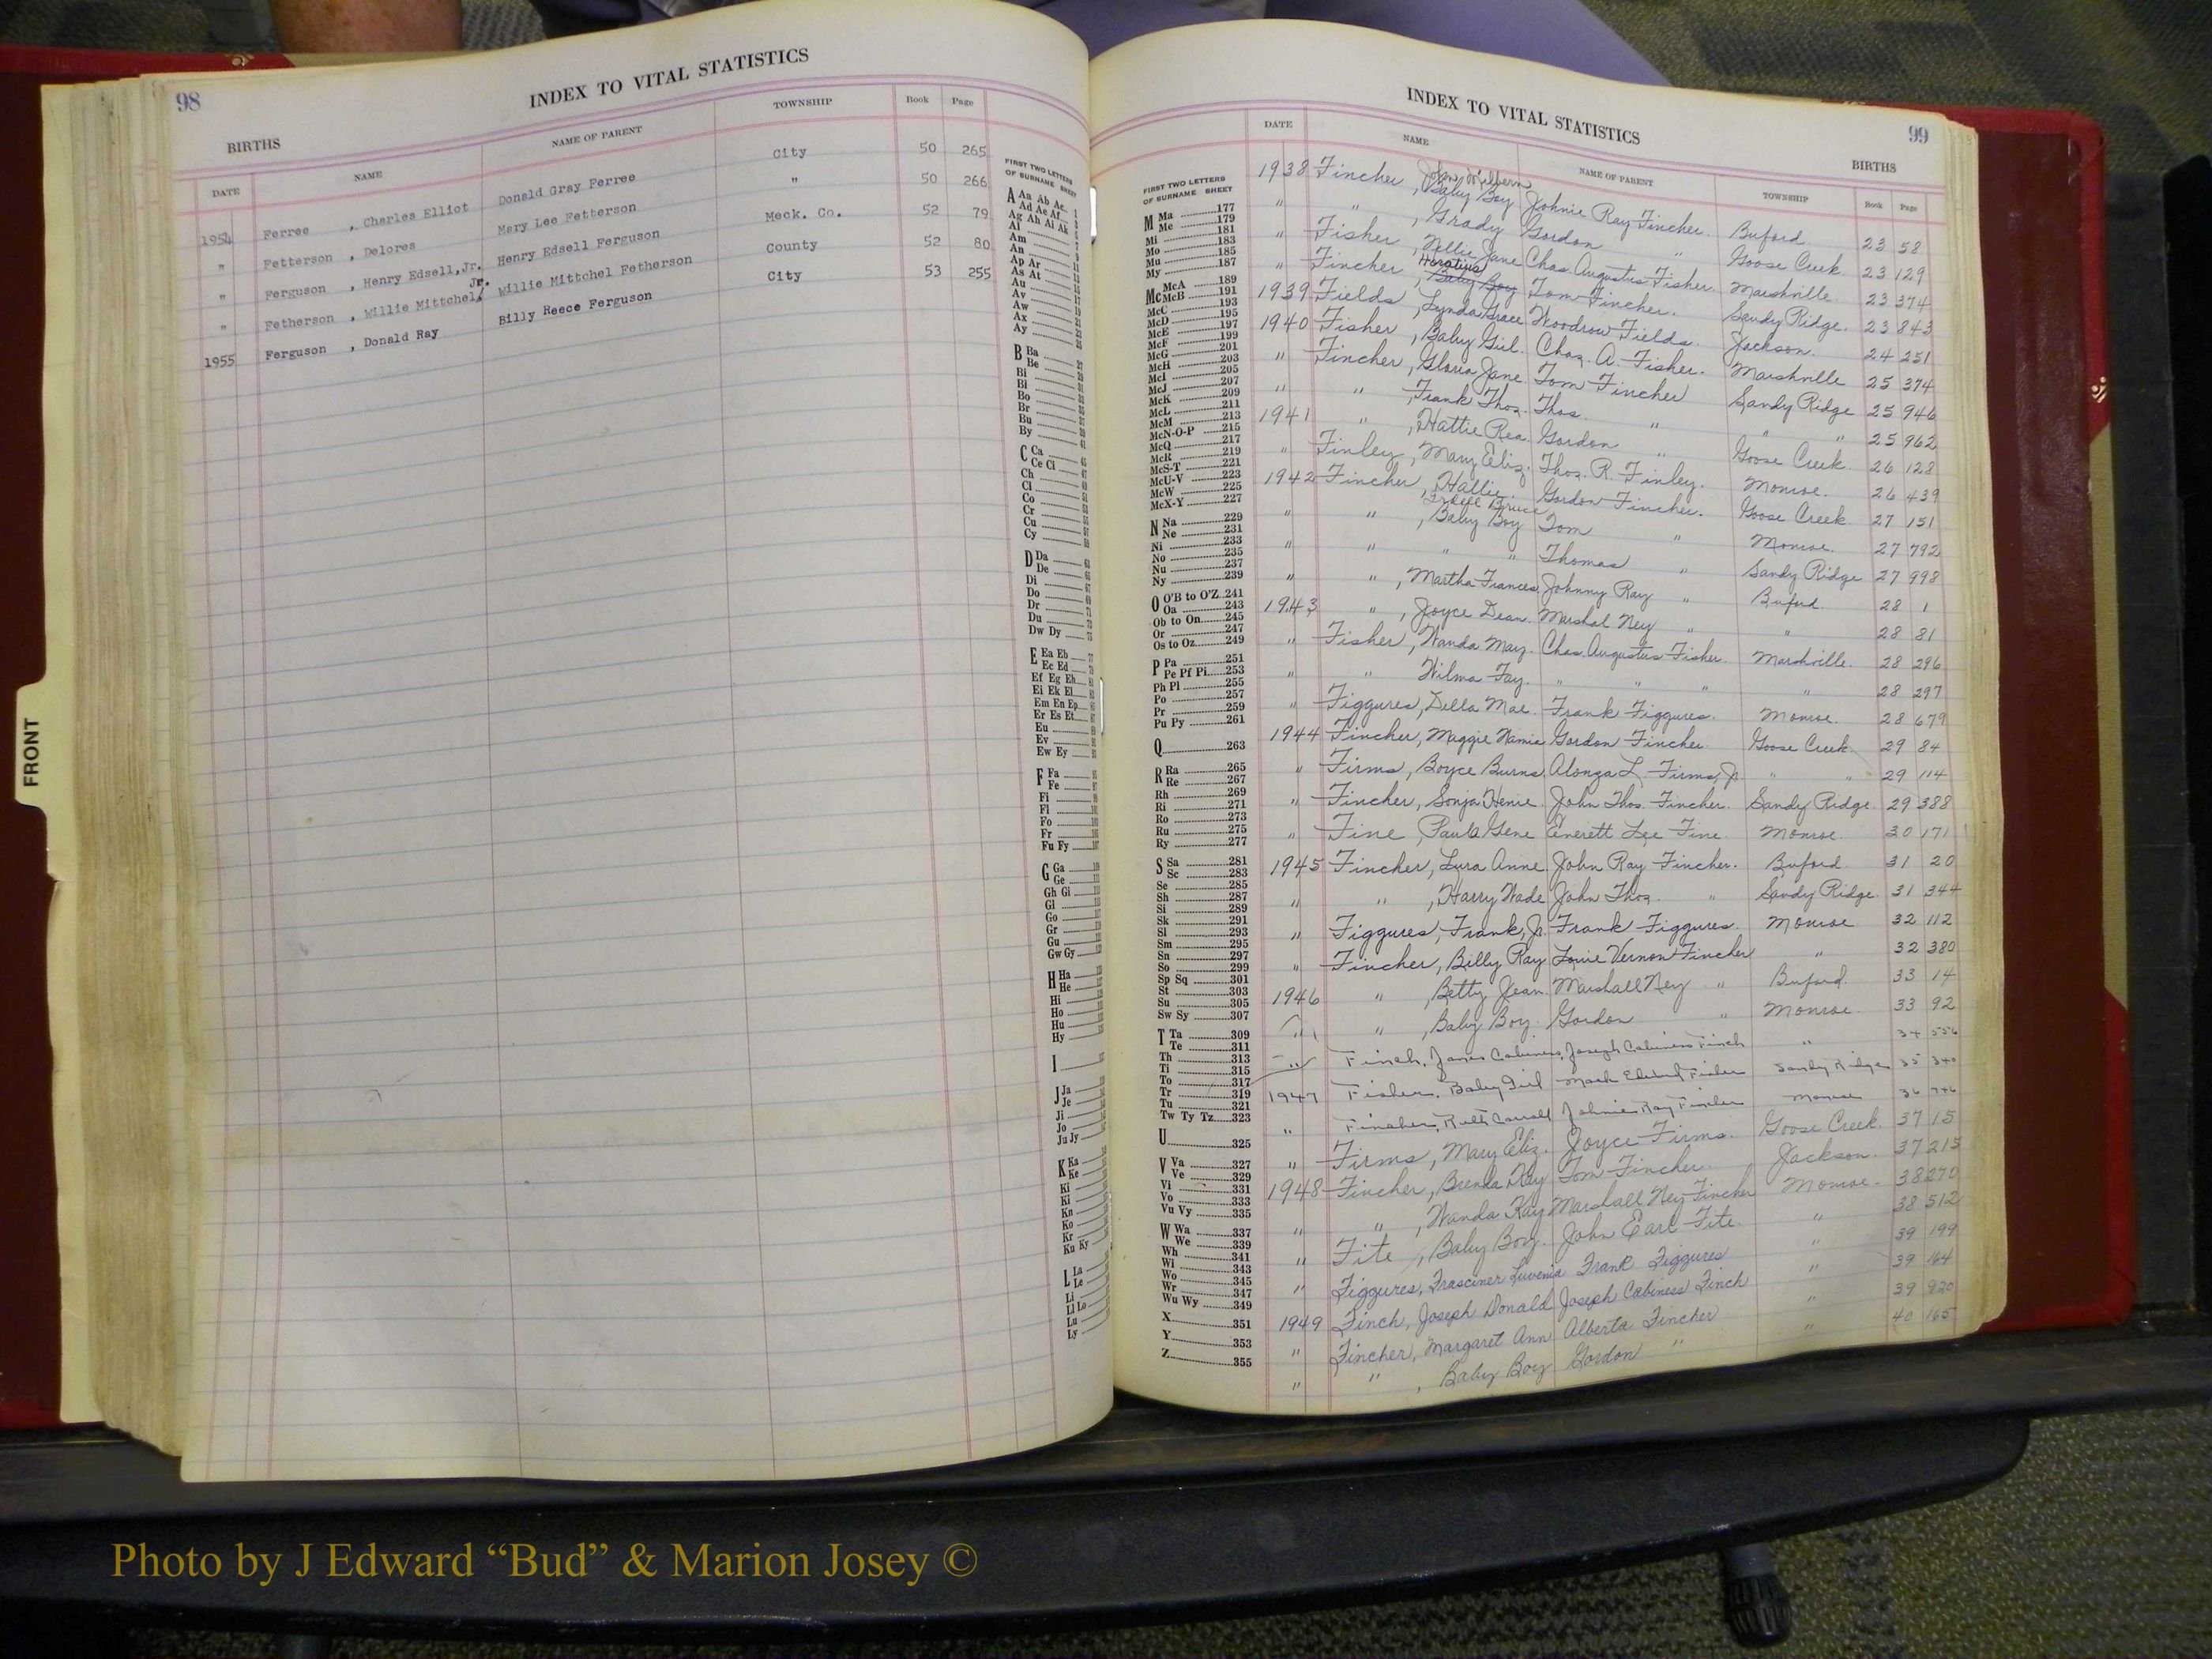 98
INDEX TO VITAL STATISTICS
BIRTHS
DATE NAME NAME OF PARENT TOWNSHIP Book Page
1954 Ferree , Charles Elliot Donald Gray Ferree City 50 265
" Fetterson , Delores Mary Lee Fetterson " 50 266
" Ferguson , Henry Edsell, Jr. Henry Edsell Ferguson Meck. Co. 52 79
" Fetherson , Willie Mittchel, Jr. Willie Mittchel Fetherson County 52 80
1955 Ferguson , Donald Ray Billy Reece Ferguson City 53 255
FIRST TWO LETTERS
OF SURNAME SHEET
A Aa Ab Ac
Ad Ae Af
Ag Ah Ai Ak
Al
Am
An
Ap Ar
As At
Au
Av
Aw
Ax
Ay
B Ba
Be
Bi
Bl
Bo
Br
Bu
By
C Ca
Ce Ci
Ch
Cl
Co
Cr
Cu
Cy
D Da
De
Di
Do
Dr
Du
Dw Dy
E Ea Eb
Ec Ed
Ef Eg Eh
Ei Ek El
Em En Ep
Er Es Et
Eu
Ev
Ew Ey
F Fa
Fe
Fi
Fl
Fo
Fr
Fu Fy
G Ga
Ge
Gh Gi
Gl
Go
Gr
Gu
Gw Gy
H Ha
He
Hi
Ho
Hu
Hy
I
J Ja
Je
Ji
Jo
Ju Jy
K Ka
Ke
Ki
Kl
Kn
Ko
Kr
Ku Ky
L La
Le
Li
Ll Lo
Lu
Ly
FRONT
INDEX TO VITAL STATISTICS
99
BIRTHS
FIRST TWO LETTERS
OF SURNAME SHEET
M Ma 177
Me 179
Mi 181
Mo 183
Mu 185
My 187
Mc McA 189
McB 191
McC 193
McD 195
McE 197
McF 199
McG 201
McH 203
McI 205
McJ 207
McK 209
McL 211
McM 213
McN-O-P 215
McQ 217
McR 219
McS-T 221
McU-V 223
McW 225
McX-Y 227
N Na 229
Ne 231
Ni 233
No 235
Nu 237
Ny 239
O O'B to O'Z 241
Oa 243
Ob to On 245
Or 247
Os to Oz 249
P Pa 251
Pe Pf Pi 253
Ph Pl 255
Po 257
Pr 259
Pu Py 261
Q 263
R Ra 265
Re 267
Rh 269
Ri 271
Ro 273
Ru 275
Ry 277
S Sa 281
Sc 283
Se 285
Sh 287
Si 289
Sk 291
Sl 293
Sm 295
Sn 297
So 299
Sp Sq 301
St 303
Su 305
Sw Sy 307
T Ta 309
Te 311
Th 313
Ti 315
To 317
Tr 319
Tu 321
Tw Ty Tz 323
U 325
V Va 327
Ve 329
Vi 331
Vo 333
Vu Vy 335
W Wa 337
We 339
Wh 341
Wi 343
Wo 345
Wr 347
Wu Wy 349
X 351
Y 353
Z 355
DATE NAME NAME OF PARENT TOWNSHIP Book Page
John Wilburn
1938 Fincher , Baby Boy Johnie Ray Fincher. Buford. 23 58
" " , Grady Gordon " Goose Creek 23 129
" Fisher , Nellie Jane Chas. Augustus Fisher. Marshville 23 374
Horatius
" Fincher , Baby Boy Tom Fincher. Sandy Ridge. 23 843
1939 Fields , Lynda Grace Woodrow Fields. Jackson. 24 251
1940 Fisher , Baby Girl. Chas. A. Fisher. Marshville 25 374
" Fincher , Gloria Jane Tom Fincher Sandy Ridge 25 946
" " , Frank Thos. Thos. " " " 25 962
1941 " , Hattie Rea. Gordon " Goose Creek. 26 128
" Finley , Mary Eliz. Thos. R. Finley. Monroe. 26 439
1942 Fincher , Hallie. Gordon Fincher. Goose Creek 27 151
" " , Baby Boy Tom " Monroe. 27 792
" " " " Thomas " Sandy Ridge 27 998
" " , Martha Frances Johnny Ray " Buford 28 1
1943 " , Joyce Dean. Marshal Ney " " 28 81
" Fisher , Wanda May. Chas. Augustus Fisher. Marshville. 28 296
" " Wilma Fay. " " " " 28 297
" Figgures, Della Mae. Frank Figgures. Monroe. 28 679
1944 Fincher, Maggie Namie Gordon Fincher. Goose Creek 29 84
" Firms, Boyce Burns. Alonza L. Firms, Jr. " " 29 114
" Fincher, Sonja Henie John Thos. Fincher. Sandy Ridge 29 388
" Fine , Paula Gene Everett Lee Fine. Monroe. 30 171
1945 Fincher, Lura Anne. John Ray Fincher. Buford 31 20
" " , Harry Wade John Thos. " Sandy Ridge 31 344
" Figgures, Frank, Jr. Frank Figgures. Monroe 32 112
" Fincher, Billy Ray Louie Vernon Fincher " 32 380
1946 " , Betty Jean. Marshall Ney " Buford. 33 14
" " , Baby Boy. Gordon " Monroe 33 92
" Finch, James Cabiness, Joseph Cabiness Finch " 34 556
1947 Fisher, Baby Girl Mack Edward Fisher Sandy Ridge 35 340
" Fincher, Ruth Carroll Johnie Ray Fincher Monroe 36 746
" Firms , Mary Eliz. Joyce Firms. Goose Creek. 37 15
1948 Fincher , Brenda Kay Tom Fincher. Jackson. 37 213
" " , Wanda Kay Marshall Ney Fincher Monroe. 38 270
" Fite , Baby Boy. John Earl Fite. " 38 512
" Figgures, Frasciner Luvenia Frank Figgures " 39 199
1949 Finch, Joseph Donald Joseph Cabiness Finch " 39 164
" Fincher, Margaret Ann Alberta Fincher " 39 920
" " , Baby Boy Gordon " " 40 165
Photo by J Edward “Bud” & Marion Josey ©